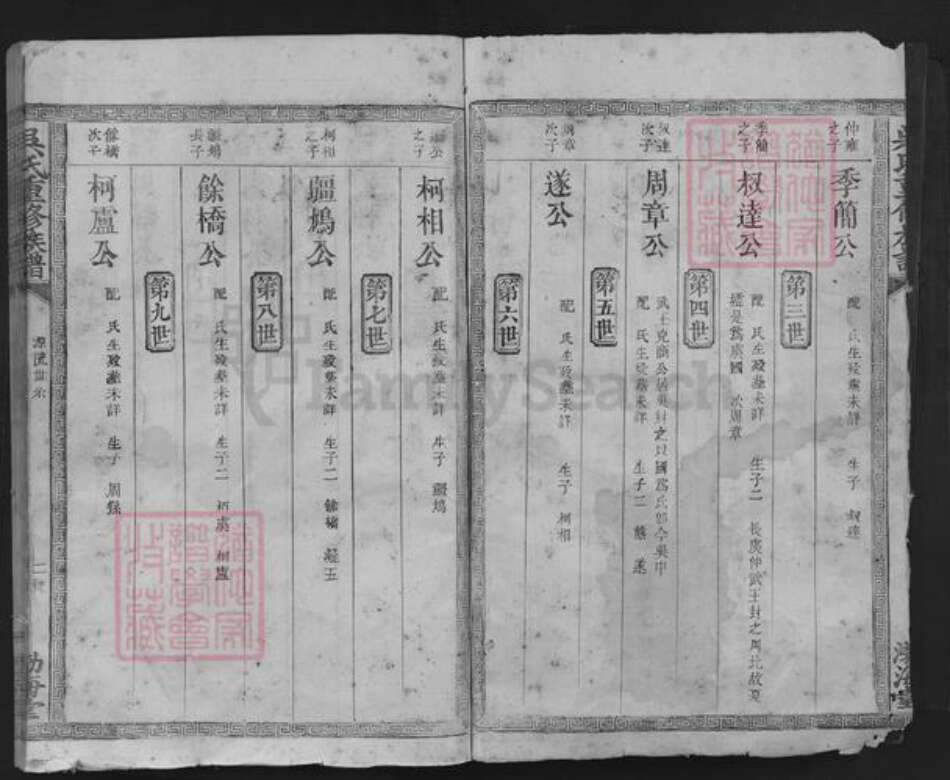 仲雍之子
季簡公
配 氏生殁葬未詳 生子 叔達
第三世
季簡之子
叔達公
配 氏生殁葬未詳 生子二 長虞仲武王封之周北故夏
墟是爲虞國 次周章
第四世
叔達次子
周章公
武王克商公居吳封之以國爲氏即今吳中
配 氏生殁葬未詳 生子二 熊 遂
第五世
周章次子
遂公
配 氏生殁葬未詳 生子 柯相
第六世
遂公之子
柯相公
配 氏生殁葬未詳 生子 疆鳩
第七世
柯相之子
疆鳩公
配 氏生殁葬未詳 生子二 餘橋
第八世
疆鳩長子
餘橋公
配 氏生殁葬未詳 生子二 柯盧
第九世
餘橋次子
柯盧公
配 氏生殁葬未詳 生子 周繇
吳氏重修族譜
源流世系
二
渤海堂
FamilySearch